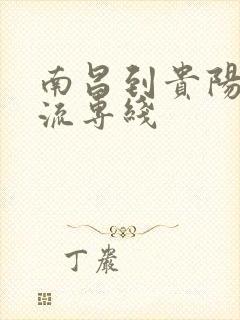 南昌到貴陽
流專綫
丁嚴